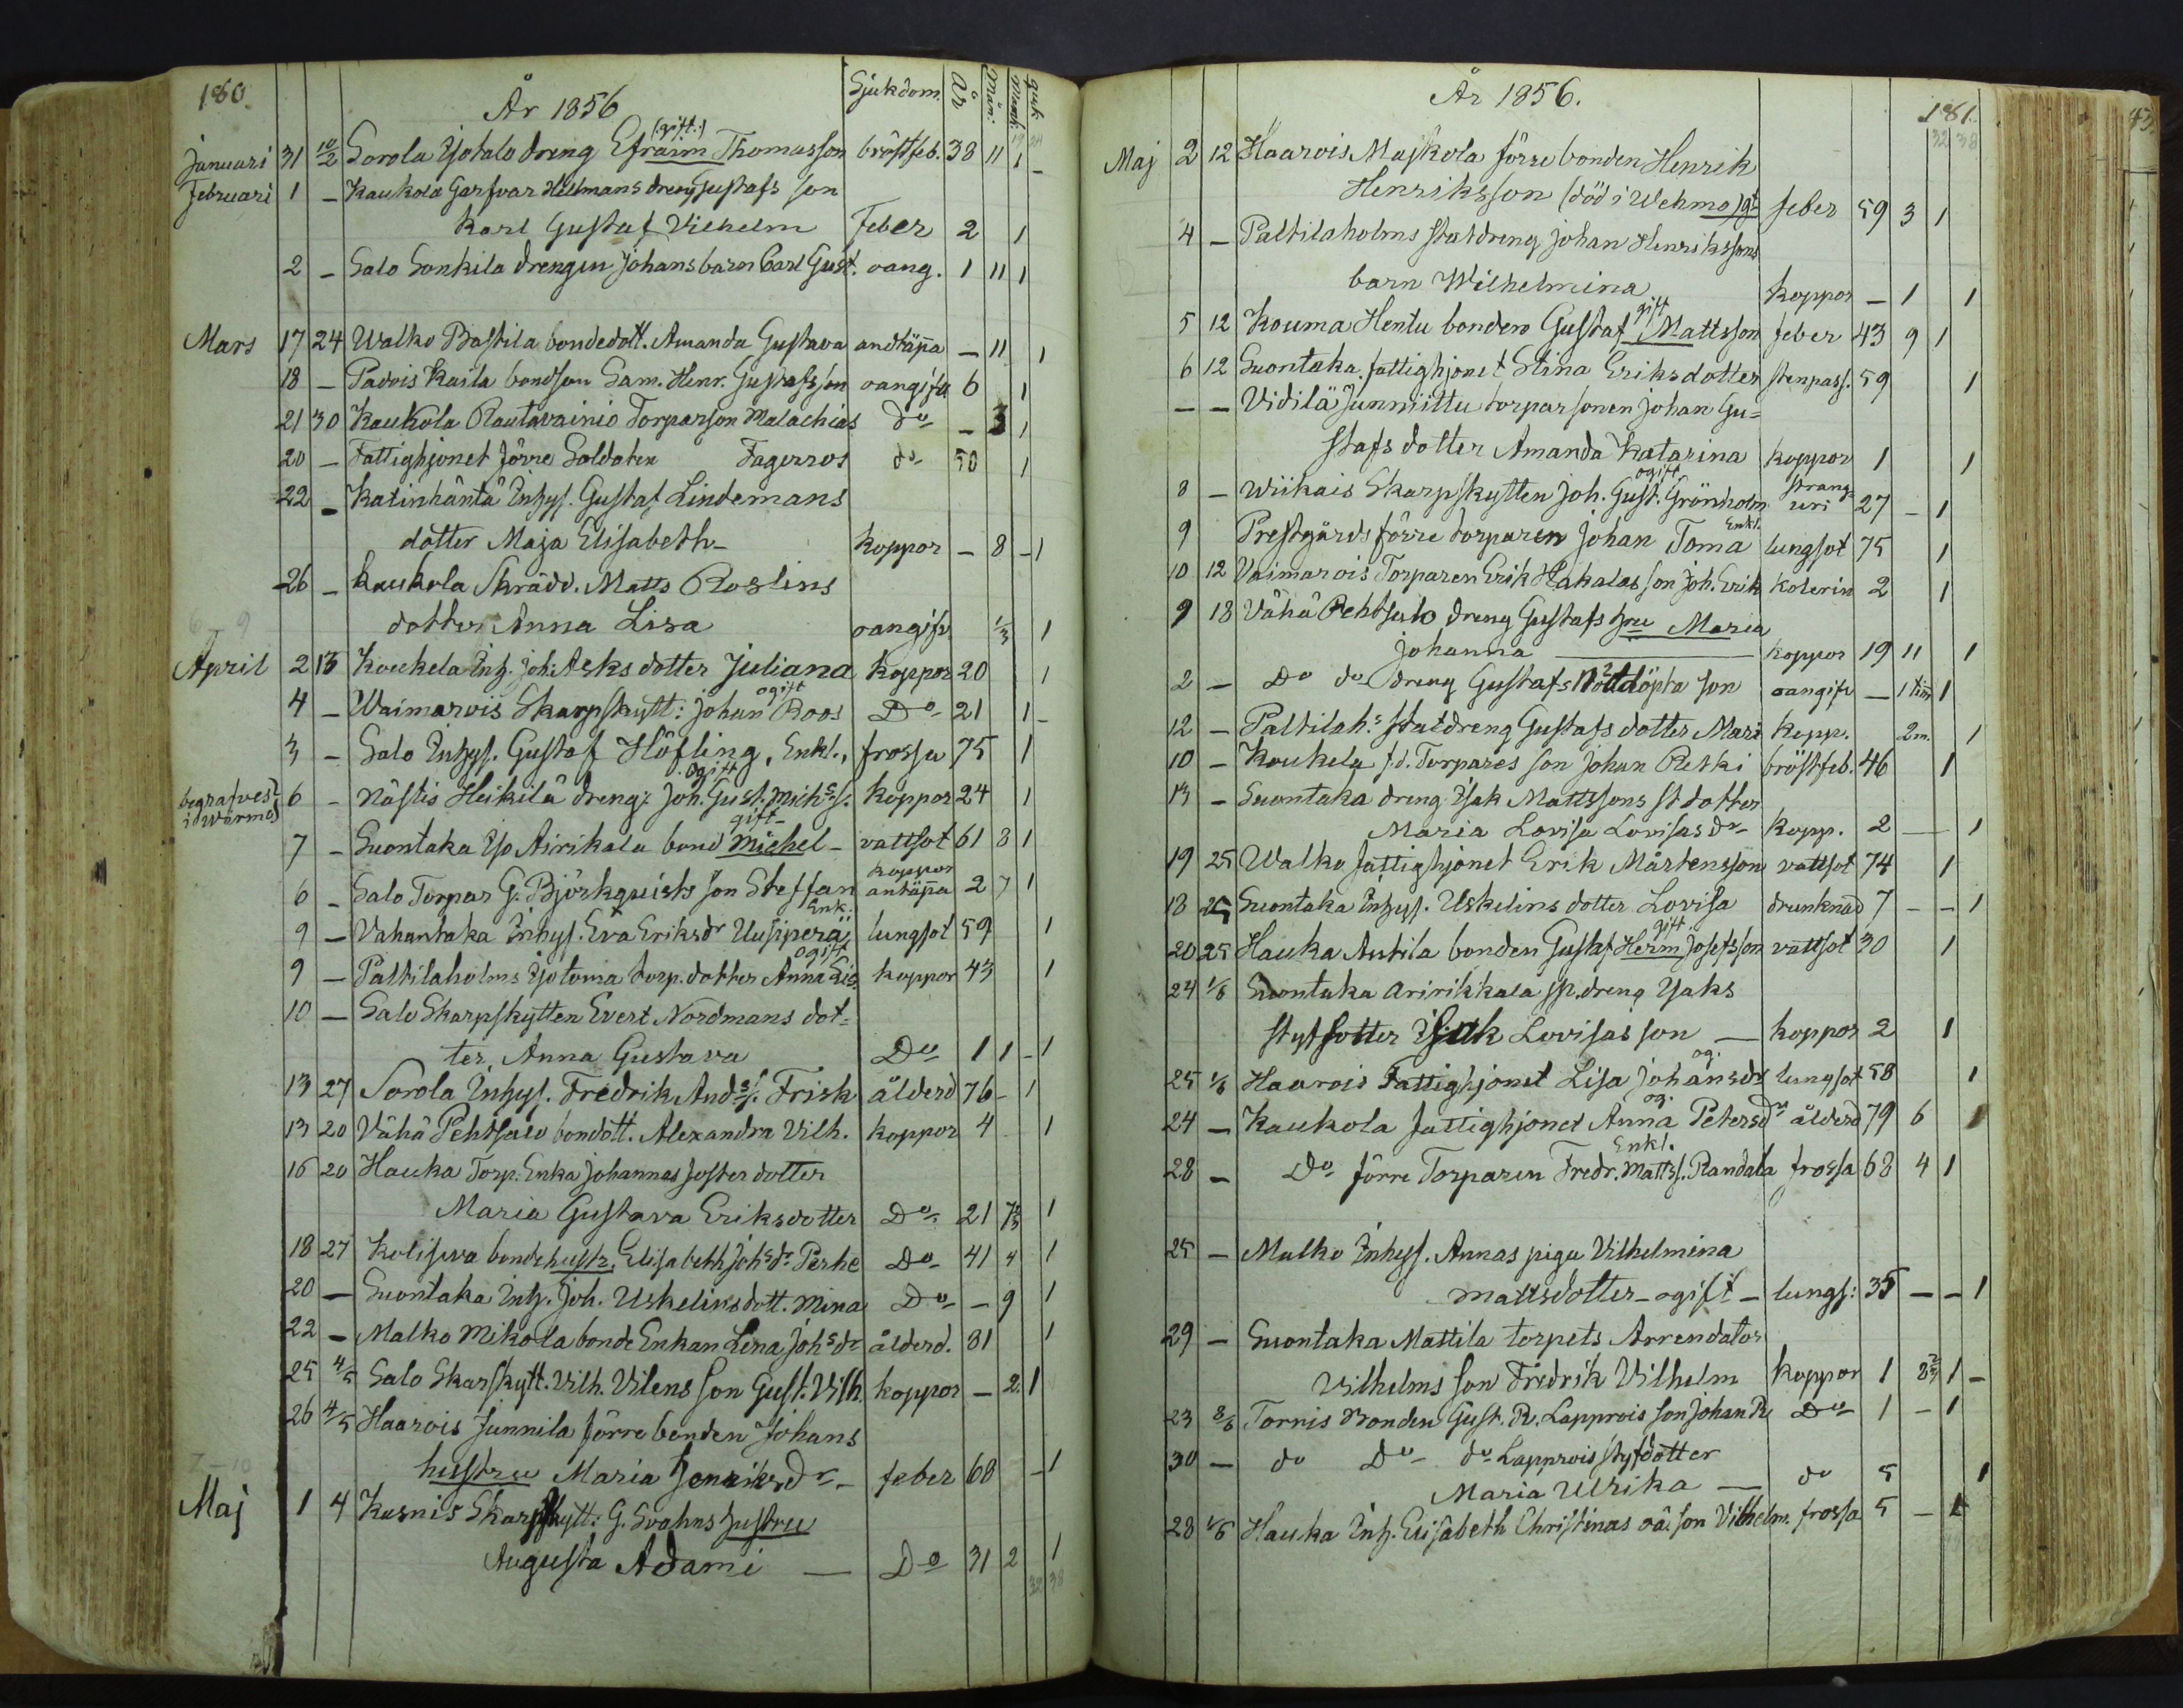 180.
År 1856
Sjukdom. År Mån: Mank: Qvik
(gift.)
Januari 31 10/2 Sorola Yotalo dreng Efraim Thomasson bröstfeb. 38 11 1 -
Februari 1 - Kaukola Garfvar Hellmans dreng Gustafs son
Karl Gustaf Vilhelm Feber 2 1
2 - Salo Sonkila drengen Johans barn Carl Gust. oang. 1 11 1
Mars 17 24 Walko Bastila bondedott. Amanda Gustava andtäpa - 11 1
18 - Padois Kaila bondson Sam. Henr. Gustafsson oangifv 6 1
21 30 Kaukola Rautavainio Torparson Malachias do - 3 1
20 - Fattighjonet förre Soldaten Fagerros do 50 1
22 - Katinhäntä Inhys. Gustaf Lindemans
dotter Maja Elisabeth - koppor - 8 - 1
26 - Kaukola Skrädd. Matts Roslins
dotter Anna Lisa oangifv 1/3 1
April 2 13 Koukela Inh. Joh: Asks dotter Juliana koppor 20 1
ogift
4 - Waimarois Skarpskytt: Johan Roos Do 21 1 -
3 - Salo Inhys. Gustaf Höfling, Enkl., frossa 75 1
ogift
begrafves i Wärmo 6 - Nästis Heikilä dreng: Joh. Gust. Mich:s. koppor 24 1
gift -
7 - Suontaka Yo Airikala bond Michel - vattsot 61 8 1
koppor
6 - Salo Torpar G. Björkquists son Steffan antäpa 2 7 1
Enk.
9 - Vahantaka Inhys. Eva Eriksdr Uusiperä lungsot 59 1
ogift
9 - Paltilaholms Yotoma torp. dotter Anna Lis. koppor 43 1
10 - Salo Skarpskytten Evert Nordmans dot=
ter Anna Gustava Do 1 1 - 1
13 27 Sorola Inhys. Fredrik And:s. Frisk ålderd 76 - 1
13 20 Vähä Pehtsalo bondott. Alexandra Vilh. koppor 4 1
16 20 Hauka Torp. Enka Johannas foster dotter
Maria Gustava Eriksdotter Do 21 7 2/3 1
18 27 Kolisuva bondehustr. Elisabeth Johsdr Perhe Do 41 4 1
20 - Suontaka Inh. Joh. Uskelins dott. Mina Do - 9 1
22 - Malko Mikola bonde Enkan Lena Johsdr ålderd. 81 1
25 4/5 Salo Skarskytt. Vilh. Vilens son Gust. Vilh. koppor - 2. 1
26 4/5 Haarois Junnila förre bonden Johans
hustru Maria Henriksdr - feber 68 - 1
Maj 1 4 Kusnis Skarpskytt: G. Svahns hustru
Augusta Adami - Do 31 2 1
32 38
År 1856.
181.
32 38
Maj 2 12 Haarois Maskola förre bonden Henrik
Henriksson (död i Wehmo) gt feber 59 3 1
4 - Paltilaholms statdreng Johan Henrikssons
barn Wilhelmina koppor - 1 1
gift
5 12 Kouma Hentu bonden Gustaf Mattsson feber 43 9 1
6 12 Suontaka fattighjonet Stina Eriksdotter stenpass. 59 1
- - Vidilä Junniittu torparsonen Johan Gu=
stafs dotter Amanda Katarina koppor 1 1
ogift
8 - Wiikais Skarpskytten Joh. Gust. Grönholm stranguri 27 - 1
Enkl.
9 Prestgårds förre torparen Johan Toma lungsot 75 1
10 12 Vaimarois Torparen Erik Hakalas son Joh. Erik kolerin 2 1
9 18 Vähä Pehtsalo dreng Gustafs hru Maria
Johanna koppor 19 11 1
2 - Do do dreng Gustafs Nöddöpta son oangifv - 1 tim 1
12 - Paltilah:s statdreng Gustafs dotter Mari kopp. 2m. 1
10 - Koukela f.d. Torpares son Johan Retki bröstfeb. 46 1
13 - Suontaka dreng Isak Mattssons stdotter
Maria Lovisa Lovisasdr kopp. 2 - 1
19 25 Walko fattighjonet Erik Mårtensson vattsot 74 1
18 25 Suontaka Inhys. Uskelins dotter Lovisa drunknad 7 - - 1
gift.
20 25 Hauka Antila bonden Gustaf Herm Josefsson vattsot 30 1
24 1/6 Suontaka Aririkkala sp. dreng Isaks
styfdotter Isak Lovisas son - koppor 2 1
og.
25 1/6 Haarois Fattighjonet Lisa Johansdr lungsot 58 1
og.
24 - Kaukola fattighjonet Anna Petersdr ålderd 79 6 1
Enkl.
28 - Do förre Torparen Fredr. Mattss. Randala frossa 68 4 1
25 - Malko Inhys. Annas piga Vilhelmina
Mattsdotter - ogift - lungs: 35 - - 1
29 - Suontaka Mattila torpets Arrendator
Vilhelms son Fredrik Vilhelm koppor 1 8 2/3 1 -
23 8/6 Tornis Bonden Gust. R. Lapprois son Johan R Do 1 - 1
30 - do Do do Lapprois styfdotter
Maria Ulrika - do 5 1
28 1/6 Hauka Inh. Elisabeth Christinas oä. son Vilhelm. frossa 5 - 1
43.